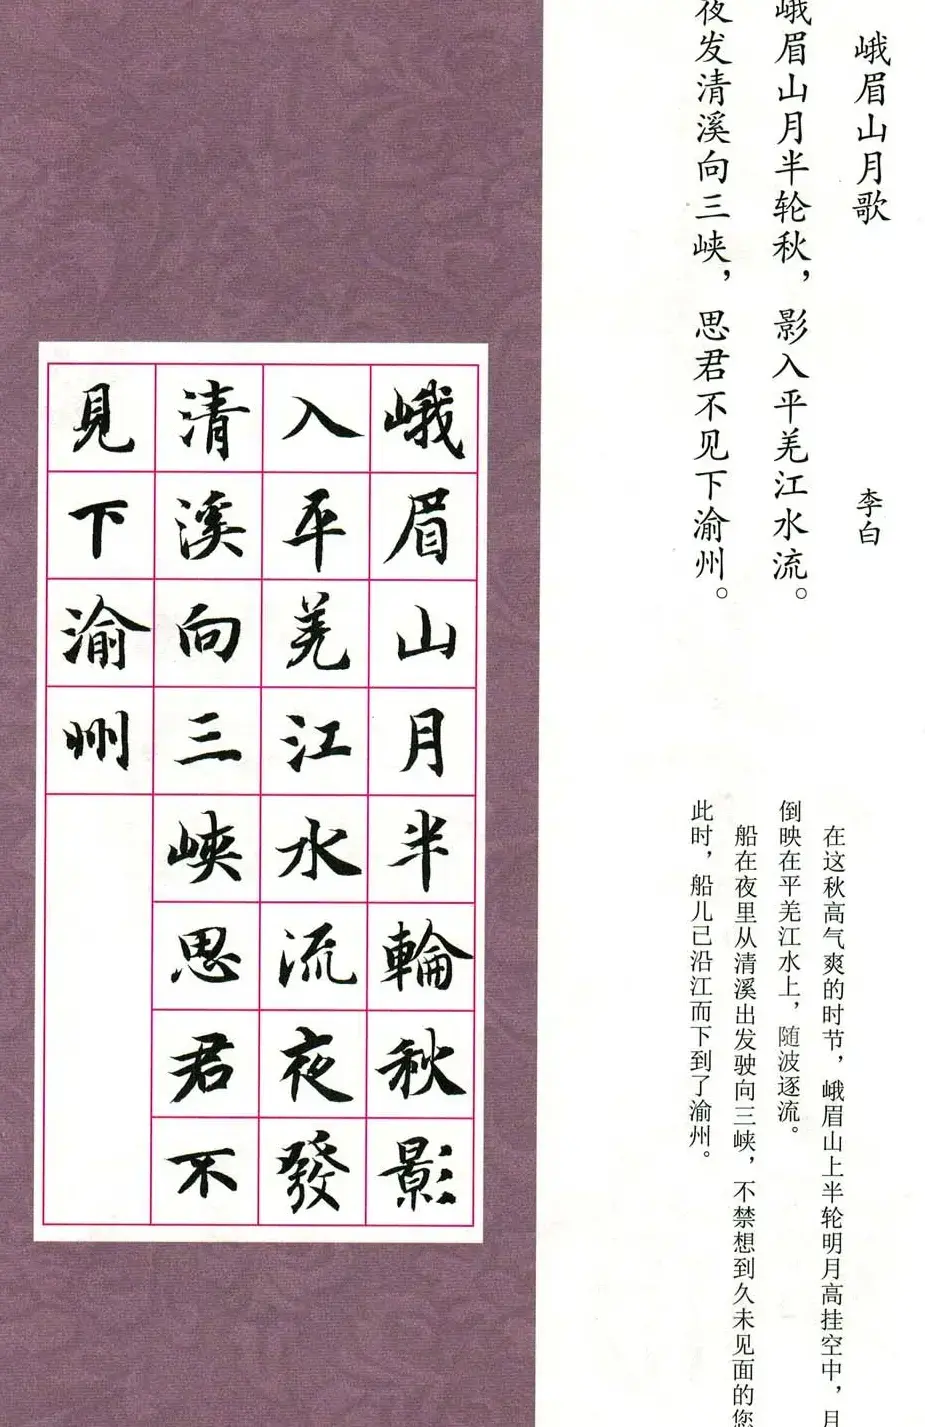 峨眉山月歌
李白
峨眉山月半轮秋，影入平羌江水流。
夜发清溪向三峡，思君不见下渝州。
在这秋高气爽的时节，峨眉山上半轮明月高挂空中，月
倒映在平羌江水上，随波逐流。
船在夜里从清溪出发驶向三峡，不禁想到久未见面的您
此时，船儿已沿江而下到了渝州。
峨眉山月半輪秋影
入平羌江水流夜發
清溪向三峽思君不
見下渝州